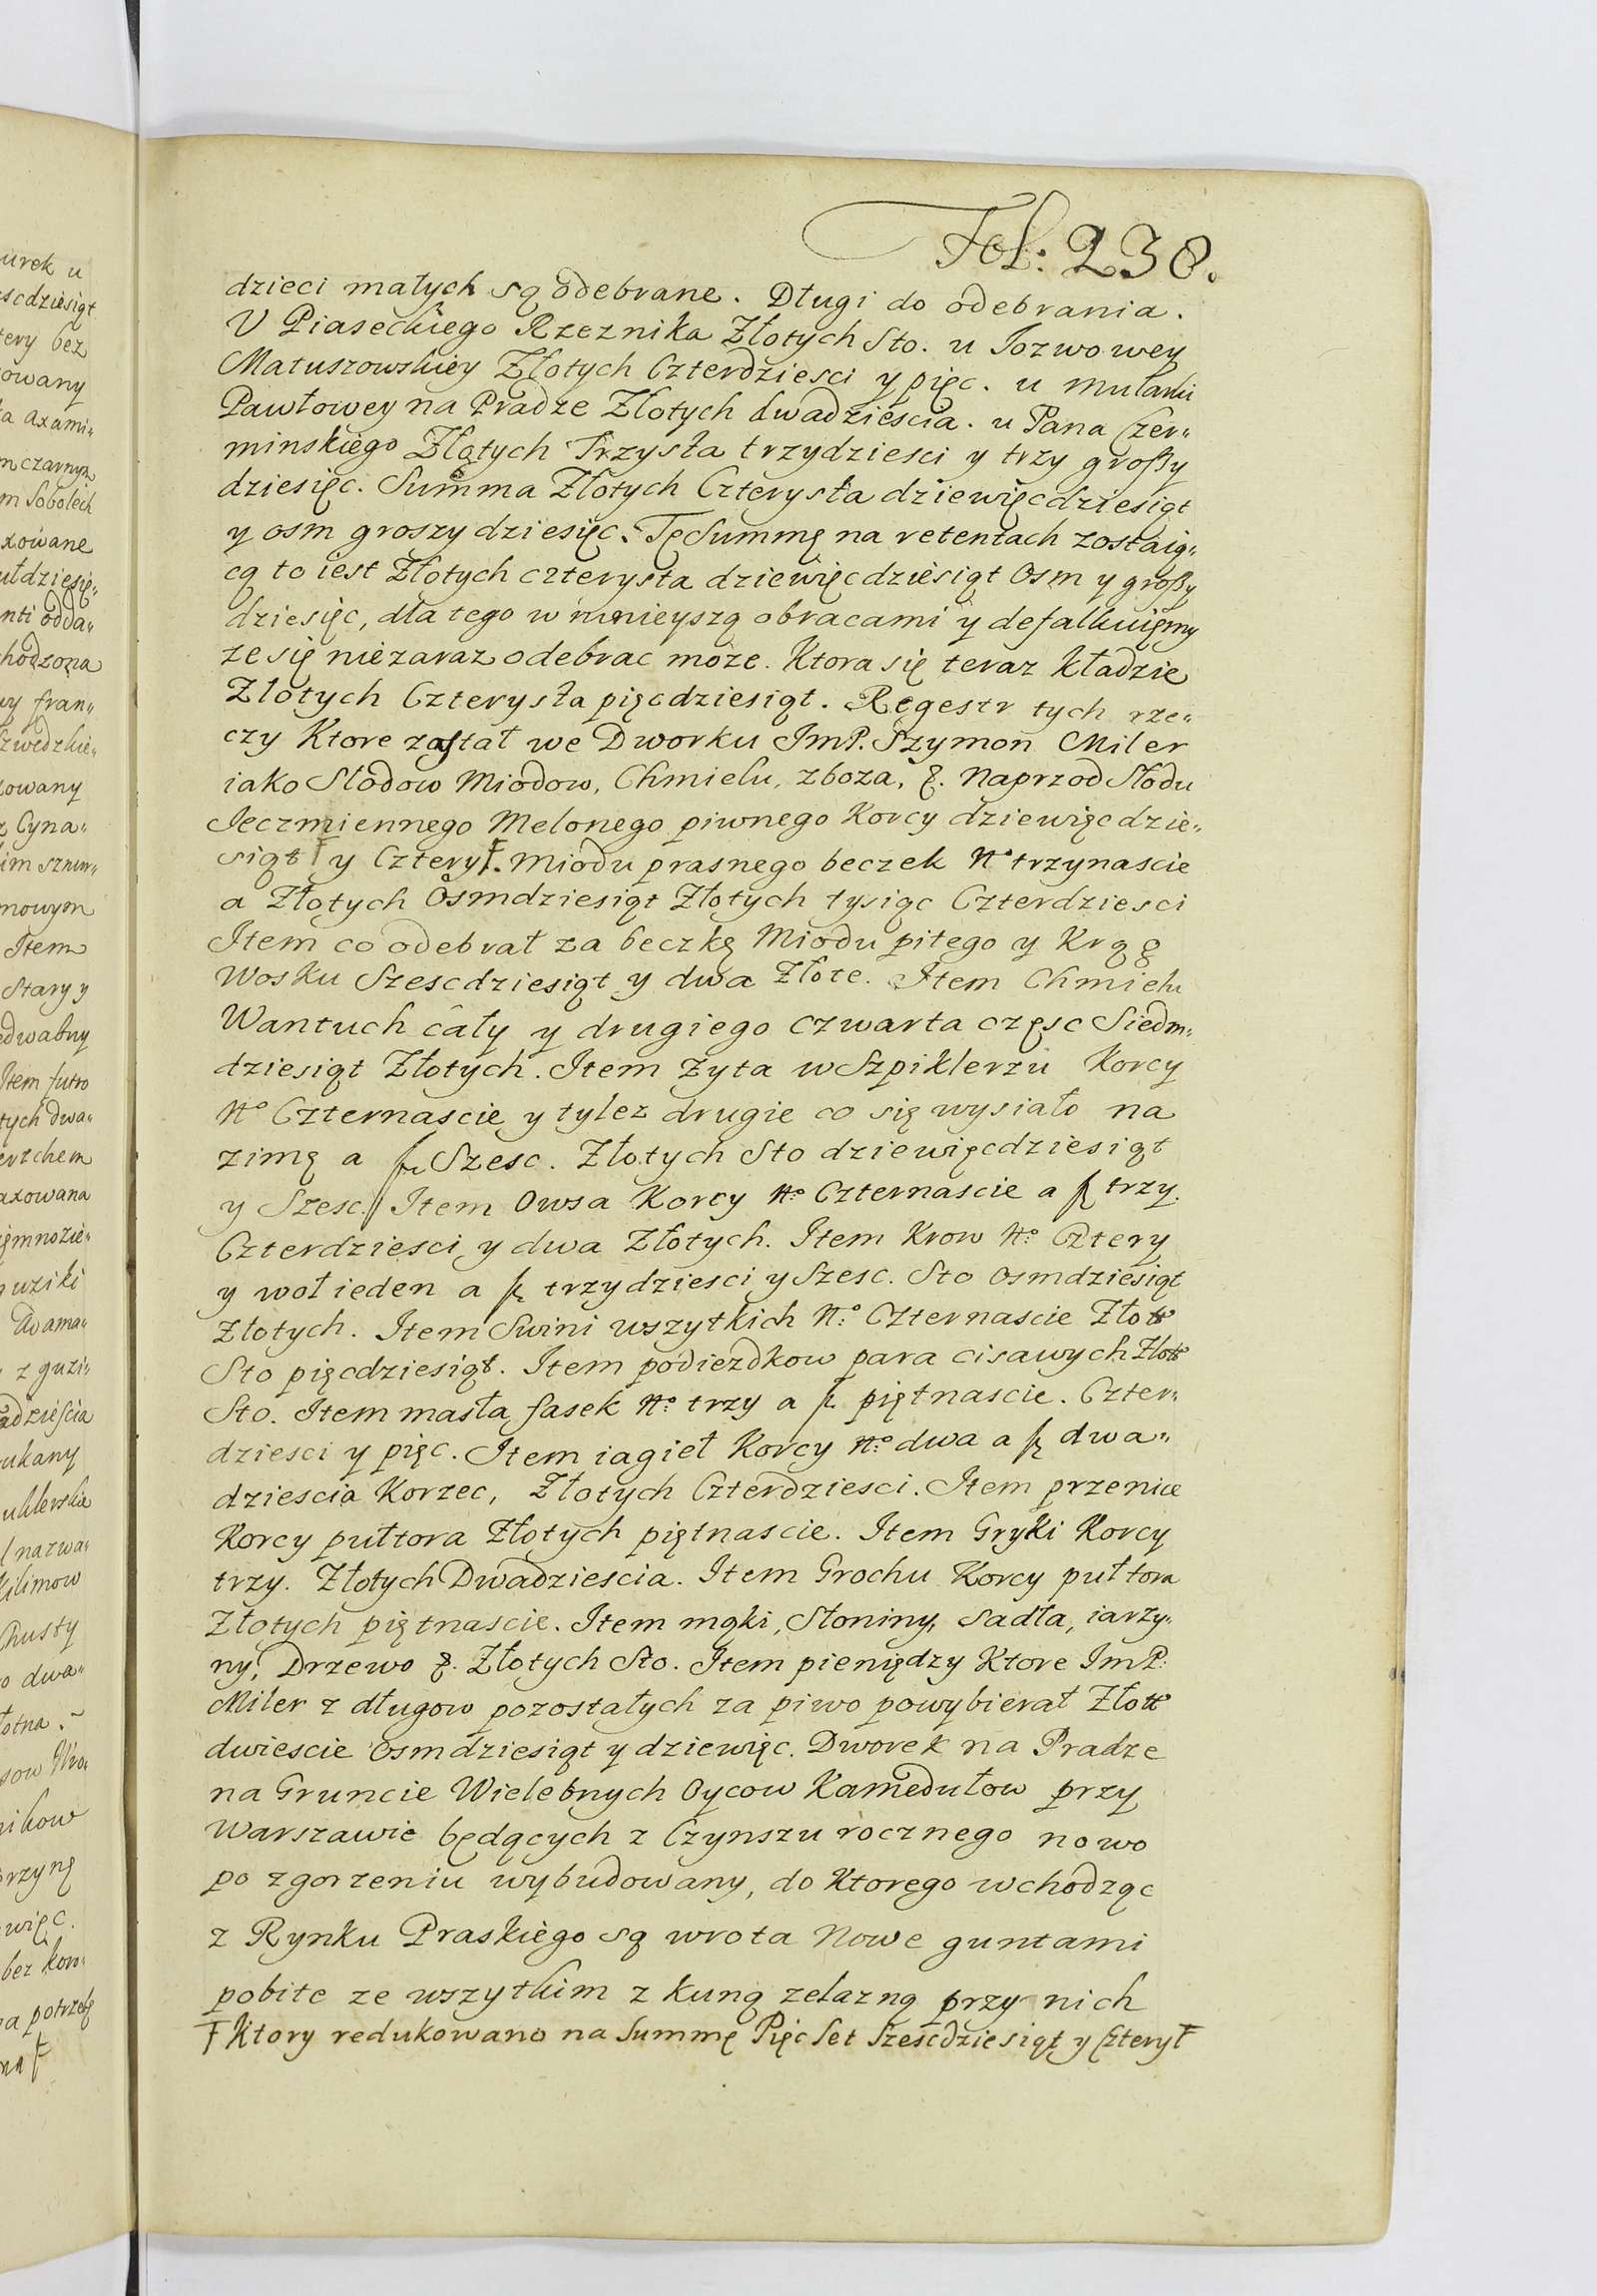 Fol: 238.
dzieci małych są odebrane. Długi do odebrania.
V Piaseckiego Rzeznika Złotych Sto. u Jozwowey
Matuszowskiey Złotych Czterdziesci y pięc. u Mularki
Pawłowey na Pradze Złotych dwadziescia. u Pana Czer„
minskiego Złotych Trzysta trzydziesci y trzy groszy
dziesięc. Summa Złotych Czterysta dziewięcdziesiąt
y osm groszy dziesięc. Tę Summę na retentach zostaią„
cą to iest Złotych czterysta dziewięcdziesiąt Osm y groszy
dziesięc, dla tego w mnieyszą obracami y defalkuięmy
ze się niezaraz odebrac może. Ktora się teraz kładzie
Złotych Czterysta pięcdziesiąt. Regestr tych rze„
czy Ktore zastał we Dworku ImP. Szymon Miler
iako Słodow Miodow, Chmielu, zboza, &. Naprzod Słodu
Jeczmiennego Melonego piwnego Korcy dziewięcdzie„
siąt y Cztery Ŧ. Miodu prasnego beczek No trzynascie
a Złotych Osmdziesiąt Złotych tysiąc Czterdziesci
Item co odebrał za beczkę Miodu pitego y Krąg
Wosku Szescdziesiąt y dwa Złote. Item Chmielu
Wantuch cały y drugiego czwarta częsc Siedm„
dziesiąt Złotych. Item Zyta w Szpiklerzu Korcy
No Czternascie y tylez drugie co się wysiało na
zimę a fl Szesc. Złotych Sto dziewięcdziesiąt
y Szesc. Item Owsa Korcy No Czternascie a fl trzy.
Czterdziesci y dwa Złotych. Item Krow No Cztery
y woł ieden a fl trzydziesci y Szesc. Sto osmdziesiąt
Złotych. Item Swini wszytkich No: Czternascie Złott
Sto pięcdziesiąt. Item podiezdkow para cisawych Złott
Sto. Item masła fasek No trzy a fl piętnascie. Czter„
dziesci y pięc. Item iagieł Korcy No dwa a fl dwa„
dziescia Korzec, Złotych Czterdziesci. Item przenice
Korcy pułtora Złotych piętnascie. Item Gryki Korcy
trzy. Złotych Dwadziescia. Item Grochu Korcy pułtora
Złotych piętnascie. Item mąki, Słoniny, Sadła, iarzy„
ny, Drzewo &. Złotych Sto. Item pieniędzy Ktore ImP:
Miler z długow pozostałych za piwo powybierał Złott
dwiescie osmdziesiąt y dziewięc. Dworek na Pradze
na Gruncie Wielebnych Oycow Kamedułow przy
Warszawie będących z Czynszu rocznego nowo
po zgorzeniu wybudowany, do Ktorego wchodząc
z Rynku Praskiego są wrota Nowe guntami
pobite ze wszytkim z kuną zelazną przy nich
Ŧ Ktory redukowano na Summę Pięc Set Szescdziesiąt y Cztery Ŧ